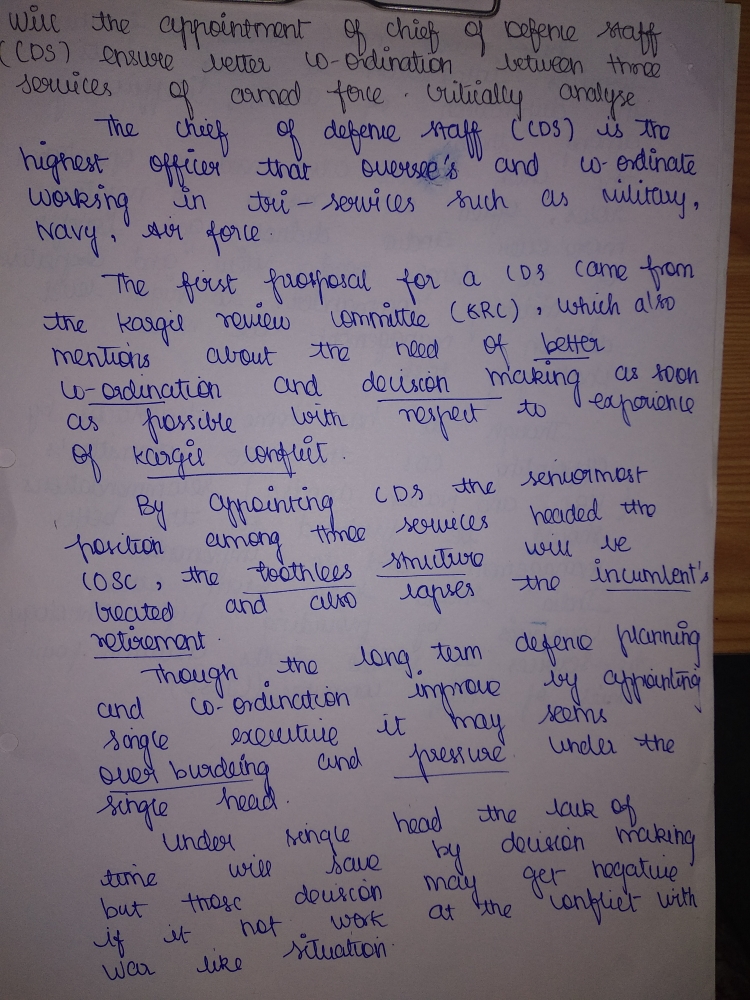 Will the appointment of chief of Defence staff
(CDS) ensure better co-ordination between three
services of armed force. Critically analyse.
The chief of defence staff (CDS) is the
highest officer that oversee's and co-ordinate
working in tri-services such as military,
Navy, Air force
The first prosposal for a CDS came from
the kargil review committee (KRC), which also
mentions about the need of better
co-ordination and decision making as soon
as possible with respect to experience
of kargil conflict.
By appointing CDS the seniormost
position among three services headed the
COSC, the toothless structure will be
treated and also lapses the incumlent's
retirement.
Though the long term defence planning
and co-ordination improve by appointing
single executive it may seems
over burdeing and pressure under the
single head.
Under single head the lack of
time will save by decision making
but those decision may get negative
if it not work at the conflict with
war like situation.